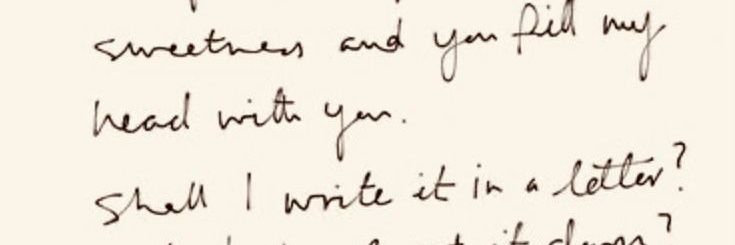 sweetness and you fill my
head with you.
Shall I write it in a letter?
it down?